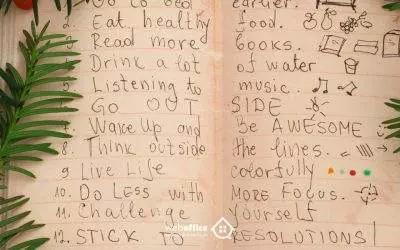 Go to bed earlier.
2. Eat healthy food.
3. Read more books.
4. Drink a lot of water
5. Listening to music.
GO OUT SIDE
7. Wake Up and Be AWESOME
8. Think outside the lines.
9 Live Life colorfully
10. Do Less with MORE FOCUS.
11. Challenge yourself
12. STICK TO RESOLUTIONS!
weboffice